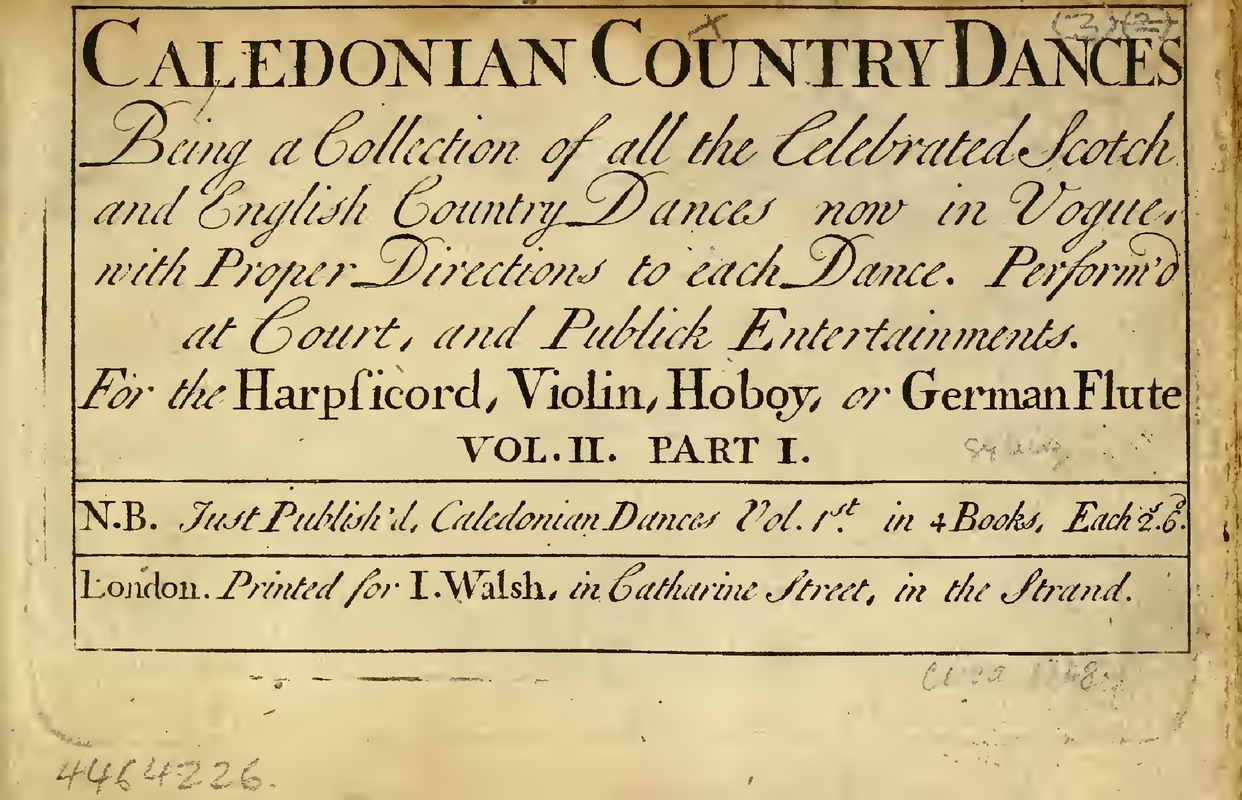 (2)(2)
CALEDONIAN COUNTRY DANCES
Being a Collection of all the Celebrated Scotch
and English Country Dances now in Vogue,
with Proper Directions to each Dance. Perform'd
at Court, and Publick Entertainments.
For the Harpſicord, Violin, Hoboy, or German Flute
VOL. II. PART I.
N.B. Just Publish'd, Caledonian Dances Vol. 1st. in 4 Books, Each 2s. 6d.
London. Printed for I. Walsh, in Catharine Street, in the Strand.
circa
4464226.